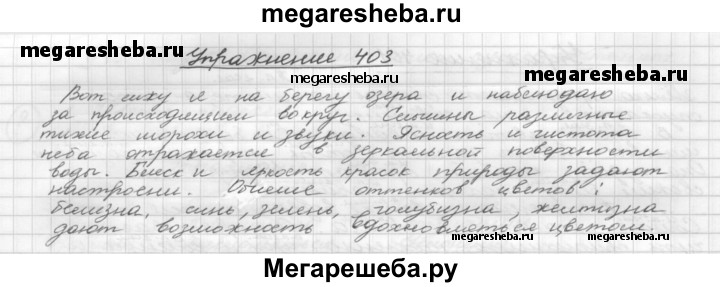 megaresheba.ru
megaresheba.ru
Упражнение 403
megaresheba.ru
Вот сижу я на берегу озера и наблюдаю
за происходящим вокруг. Слышны различные
тихие шорохи и звуки. Ясность и чистота
неба отражается в зеркальной поверхности
воды. Блеск и яркость красок природы задают
настроени. Обилие оттенков цветов:
белизна, синь, зелень, голубизна, желтизна
дают возможность вдохновляться цветом.
megaresheba.ru
megaresheba.ru
Мегарешеба.ру